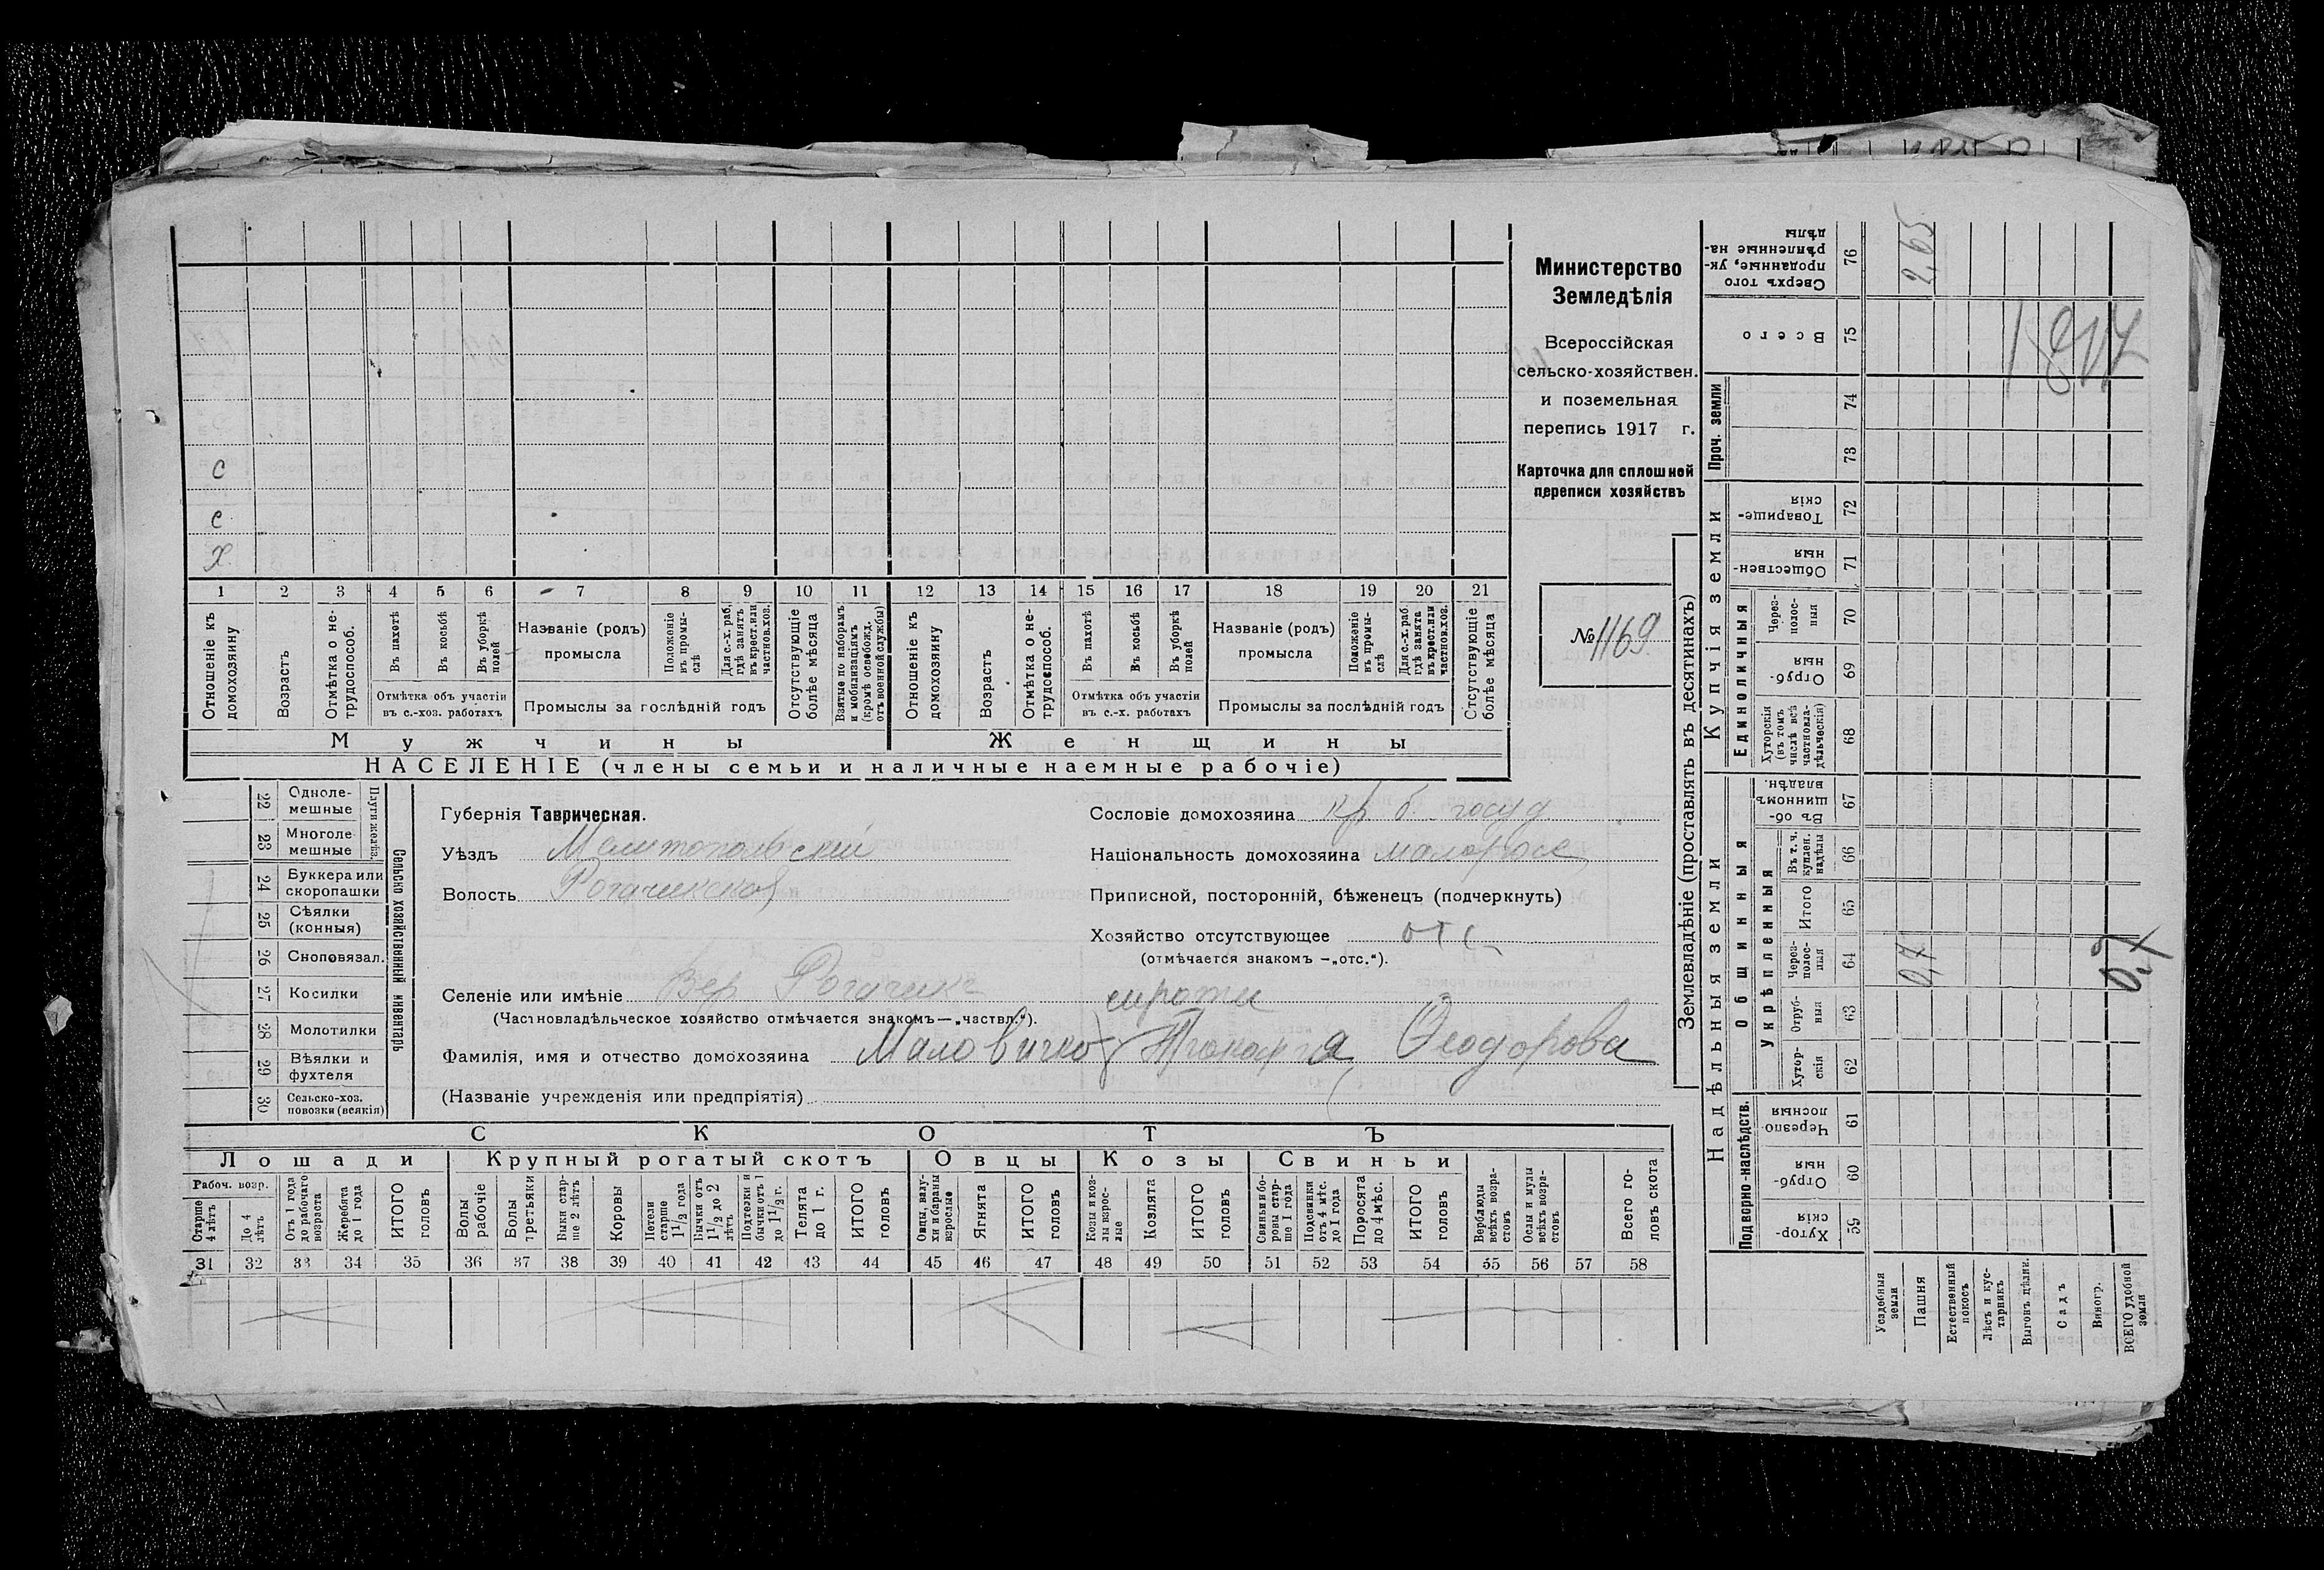 Министерство
Земледѣлія
Всероссійская
сельско-хозяйствен.
и поземельная
перепись 1917 г.
Карточка для сплошной
переписи хозяйствъ
№ 1169
С
С
Х
1 2 3 4 5 6 7 8 9 10 11 12 13 14 15 16 17 18 19 20 21
Отношеніе къ домохозяину
Возрастъ
Отмѣтка о не-трудоспособ.
Въ пахотѣ
Въ косьбѣ
Въ уборкѣ полей
Отмѣтка объ участіи
въ с.-хоз. работахъ
Названіе (родъ)
промысла
Положеніе въ промы-слѣ
Для с.-х. раб. гдѣ занятъ въ крест. или частнов. хоз.
Промыслы за послѣдній годъ
Отсутствующіе болѣе мѣсяца
Взятые по наборамъ и мобилизаціямъ (кромѣ освобожд. отъ военной службы)
Отношеніе къ домохозяину
Возрастъ
Отмѣтка о не-трудоспособ.
Въ пахотѣ
Въ косьбѣ
Въ уборкѣ полей
Отмѣтка объ участіи
въ с.-х. работахъ
Названіе (родъ)
промысла
Положеніе въ промы-слѣ
Для с.-х. раб. гдѣ занята въ крест. или частнов. хоз.
Промыслы за послѣдній годъ
Отсутствующіе болѣе мѣсяца
Мужчины
Женщины
НАСЕЛЕНІЕ (члены семьи и наличные наемные рабочіе)
22 Одноле-мешные
23 Многоле мешные
Плуги желѣз.
24 Буккера или скоропашки
25 Сѣялки (конныя)
26 Сноповязал.
27 Косилки
28 Молотилки
29 Вѣялки и фухтеля
30 Сельско-хоз. повозки (всякія)
Сельско хозяйственный инвентарь
Губернія Таврическая.
Уѣздъ Мелитопольскій
Волость Рогачикская
Селеніе или имѣніе Вер Рогачикъ
(Частновладѣльческое хозяйство отмѣчается знакомъ—„частвл.“).
Сословіе домохозяина кр. б. госуд
Національность домохозяина малоросс
Приписной, посторонній, бѣженецъ (подчеркнуть)
Хозяйство отсутствующее отс
(отмѣчается знакомъ —„отс.“).
сироты
Фамилія, имя и отчество домохозяина Маловичко Прокофія Феодорова
(Названіе учрежденія или предпріятія)
СКОТЪ
Лошади
Крупный рогатый скотъ
Овцы
Козы
Свиньи
Рабоч. возр.
Старше 4 лѣтъ
До 4 лѣтъ
Отъ 1 года до рабочаго возраста
Жеребята до 1 года
ИТОГО головъ
Волы рабочіе
Волы третьяки
Быки стар-ше 2 лѣтъ
Коровы
Нетели старше 1½ года
Бычки отъ 1½ до 2 лѣтъ
Подтелки и бычки отъ 1 до 1½ г.
Телята до 1 г.
ИТОГО головъ
Овцы, валу-хи и бараны взрослые
Ягнята
ИТОГО головъ
Козы и коз-лы взрос-лые
Козлята
ИТОГО головъ
Свиньи и бо-ровы стар-ше 1 года
Подсвинки отъ 4 мѣс. до 1 года
Поросята до 4 мѣс.
ИТОГО головъ
Верблюды всѣхъ возра-стовъ
Ослы и мулы всѣхъ возра-стовъ
Всего го-ловъ скота
31 32 33 34 35 36 37 38 39 40 41 42 43 44 45 46 47 48 49 50 51 52 53 54 55 56 57 58
Землевладѣніе (проставлять въ десятинахъ)
Надѣльныя земли
Купчія земли
Проч. земли
Подворно-наслѣдств.
Общинныя
Укрѣпленныя
Единоличныя
Сверхъ того проданные, ук-рѣпленные на-дѣлы 76 2,65
Всего 75
74
73
Товарище-скія 72
Обществен-ныя 71
Через-полос-ныя 70
Отруб-ныя 69
Хуторскія (въ томъ числѣ всѣ частновла-дѣльческія) 68
Въ об-щинномъ владѣн. 67
Въ т. ч. куплен. надѣлы 66
Итого 65
Через-полос-ныя 64 0,7 0,7
Отруб-ныя 63
Хутор-скія 62
Черезпо лосныя 61
Отруб-ныя 60
Хутор-скія 59
Усадебныя земли
Пашня
Естественный покосъ
Лѣсъ и кус-тарникъ
Выгонъ цѣлин.
Садъ
Виногр.
ВСЕГО удобной земли